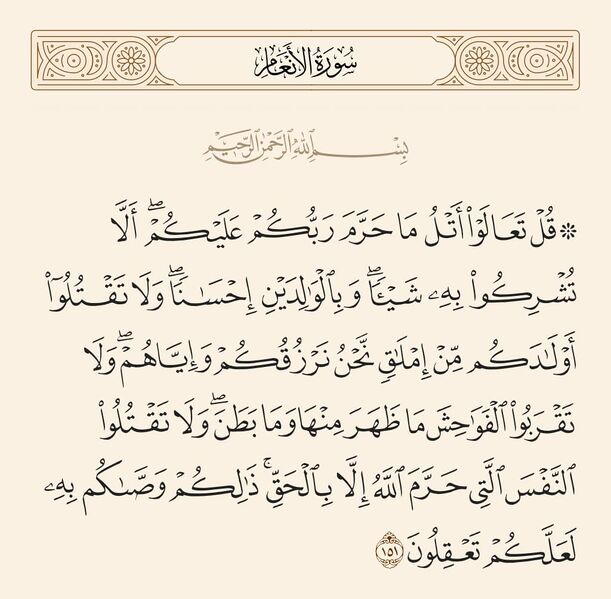 سُورَةُ الأَنْعَامِ
بِسْمِ ٱللَّهِ ٱلرَّحْمَٰنِ ٱلرَّحِيمِ
۞ قُلْ تَعَالَوْا۟ أَتْلُ مَا حَرَّمَ رَبُّكُمْ عَلَيْكُمْۖ أَلَّا
تُشْرِكُوا۟ بِهِۦ شَيْـًٔاۖ وَبِٱلْوَٰلِدَيْنِ إِحْسَٰنًاۖ وَلَا تَقْتُلُوٓا۟
أَوْلَٰدَكُم مِّنْ إِمْلَٰقٍۖ نَّحْنُ نَرْزُقُكُمْ وَإِيَّاهُمْۖ وَلَا
تَقْرَبُوا۟ ٱلْفَوَٰحِشَ مَا ظَهَرَ مِنْهَا وَمَا بَطَنَۖ وَلَا تَقْتُلُوا۟
ٱلنَّفْسَ ٱلَّتِى حَرَّمَ ٱللَّهُ إِلَّا بِٱلْحَقِّۚ ذَٰلِكُمْ وَصَّىٰكُم بِهِۦ
لَعَلَّكُمْ تَعْقِلُونَ ١٥١